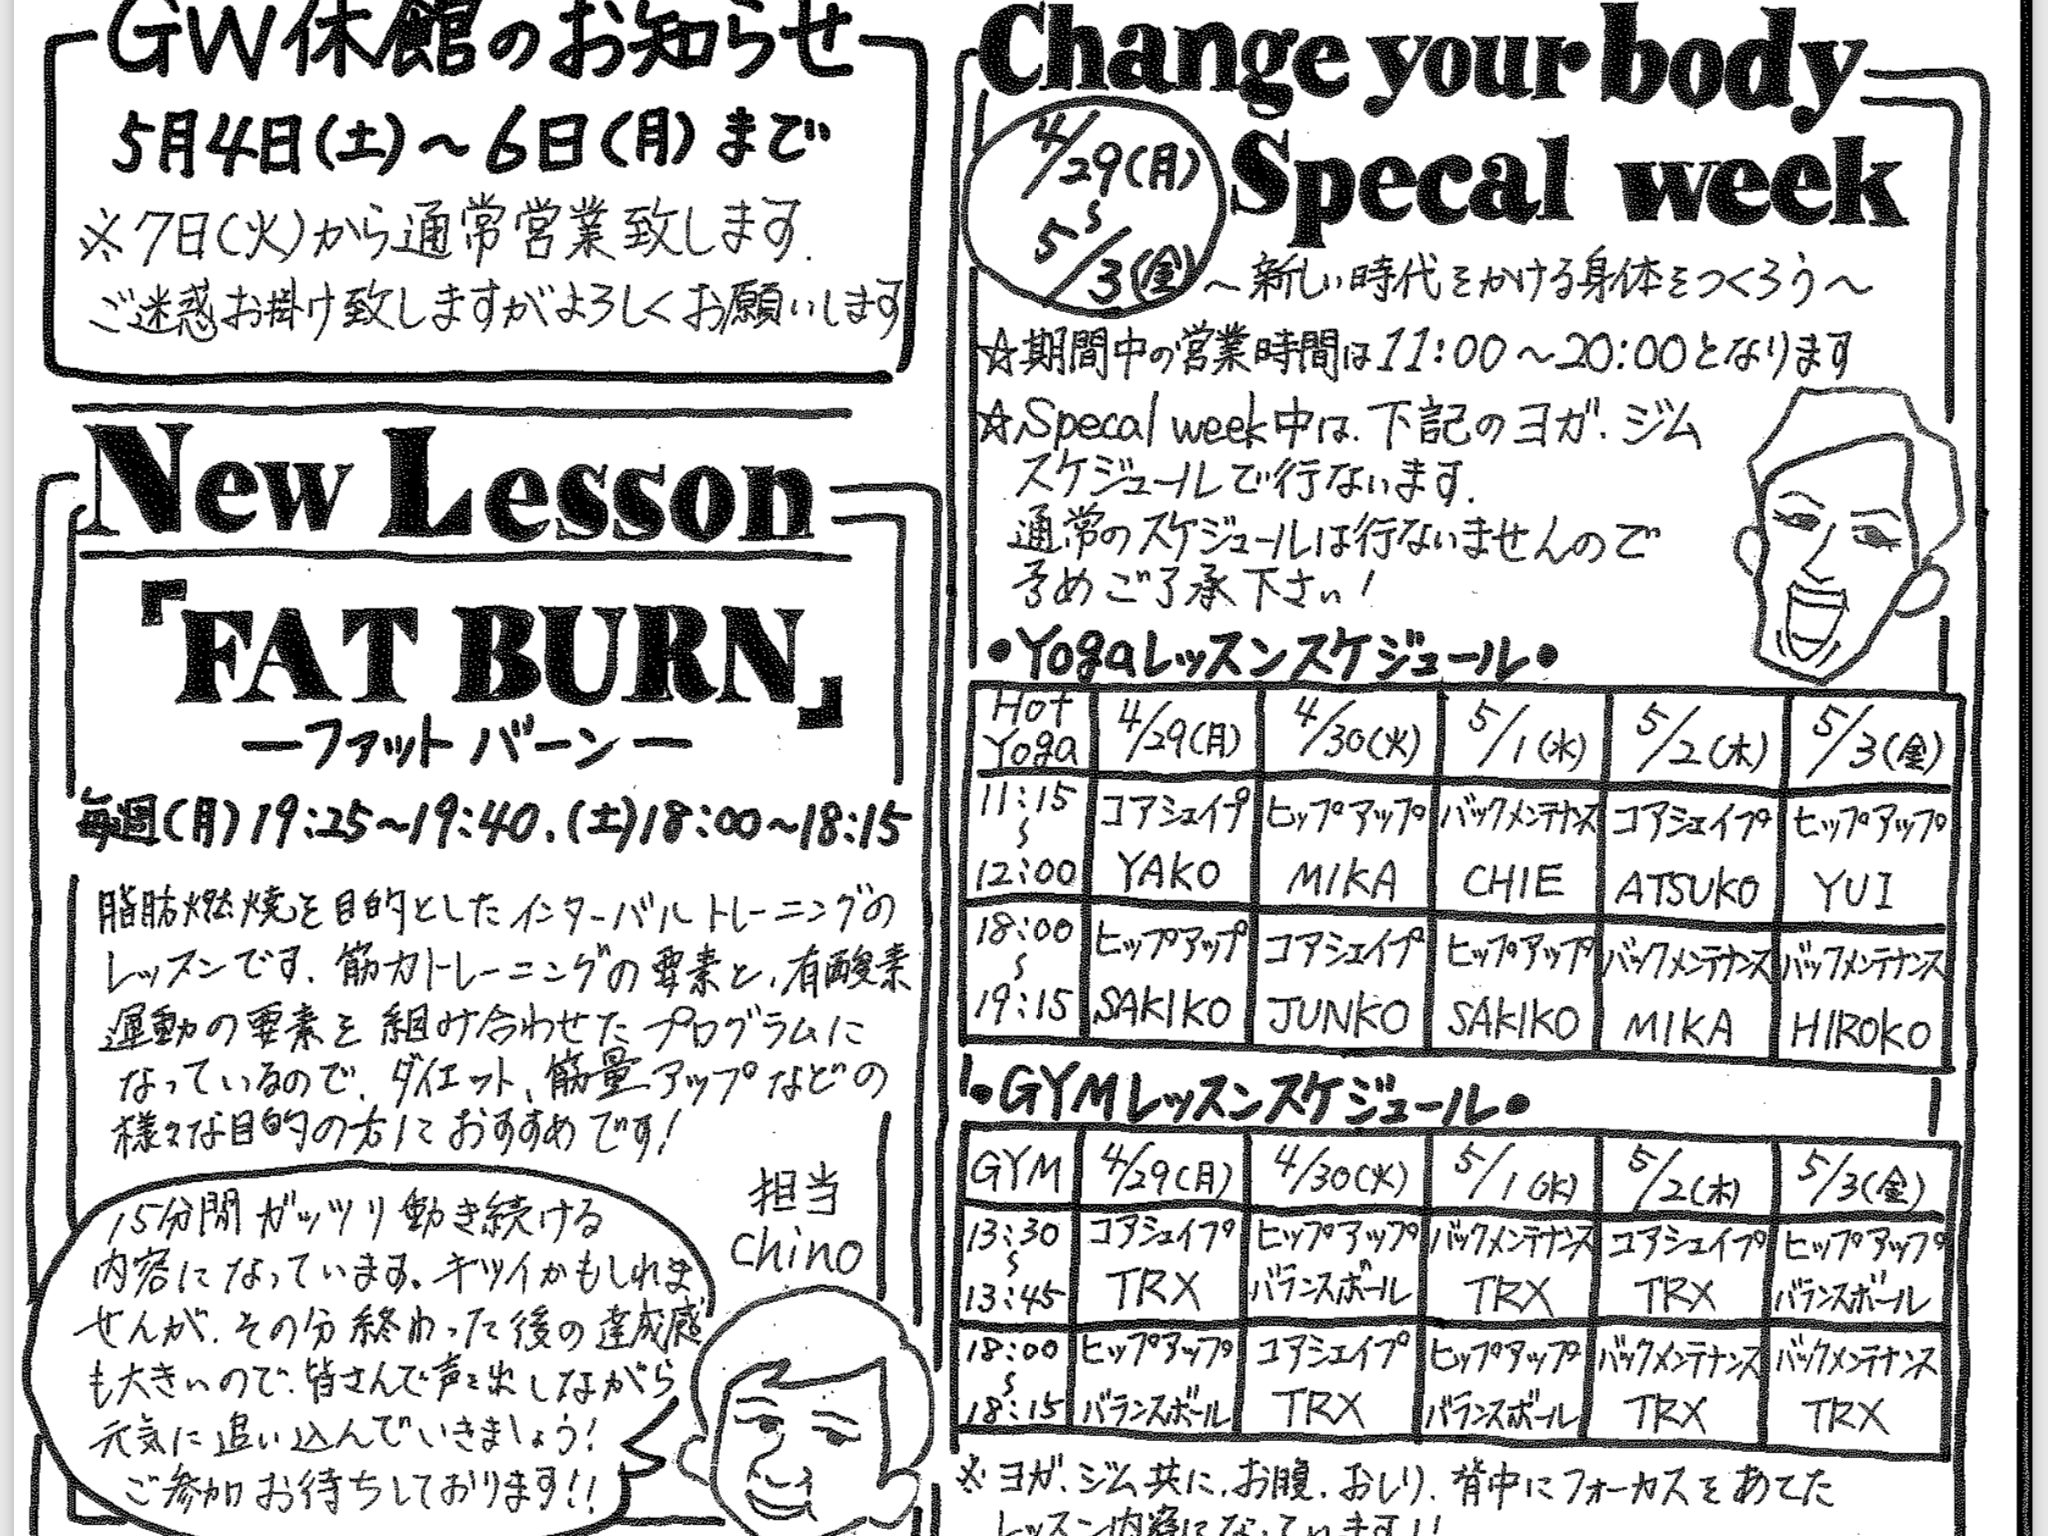 GW休館のお知らせ
5月4日(土)～6日(月)まで
※7日(火)から通常営業致します.
ご迷惑お掛け致しますがよろしくお願いします
New Lesson
『FAT BURN』
ーファットバーンー
毎週(月)19:25～19:40.(土)18:00～18:15
脂肪燃焼を目的としたインターバルトレーニングの
レッスンです.筋力トレーニングの要素と,有酸素
運動の要素を組み合わせたプログラムに
なっているので、ダイエット、筋量アップなどの
様々な目的の方におすすめです!
担当
chino
15分間ガッツリ動き続ける
内容になっています。キツイかもしれま
せんが,その分終わった後の達成感
も大きいので、皆さんで声を出しながら
元気に追い込んでいきましょう!
ご参加お待ちしております!!
Change your body
Specal week
4/29(月)
～
5/3(金)
～新しい時代をかける身体をつくろう～
☆期間中の営業時間は11:00～20:00となります
☆Specal week中は、下記のヨガ、ジム
スケジュールで行ないます.
通常のスケジュールは行ないませんので
予めご了承下さい!
•Yogaレッスンスケジュール•
Hot Yoga 4/29(月) 4/30(火) 5/1(水) 5/2(木) 5/3(金)
11:15～12:00 コアシェイプ ヒップアップ バックメンテナンス コアシェイプ ヒップアップ
YAKO MIKA CHIE ATSUKO YUI
18:00～19:15 ヒップアップ コアシェイプ ヒップアップ バックメンテナンス バックメンテナンス
SAKIKO JUNKO SAKIKO MIKA HIROKO
•GYMレッスンスケジュール•
GYM 4/29(月) 4/30(火) 5/1(水) 5/2(木) 5/3(金)
13:30～13:45 コアシェイプ ヒップアップ バックメンテナンス コアシェイプ ヒップアップ
TRX バランスボール TRX TRX バランスボール
18:00～18:15 ヒップアップ コアシェイプ ヒップアップ バックメンテナンス バックメンテナンス
バランスボール TRX バランスボール TRX TRX
※ヨガ、ジム共に、お腹、おしり、背中にフォーカスをあてた
レッスン内容になっています!!